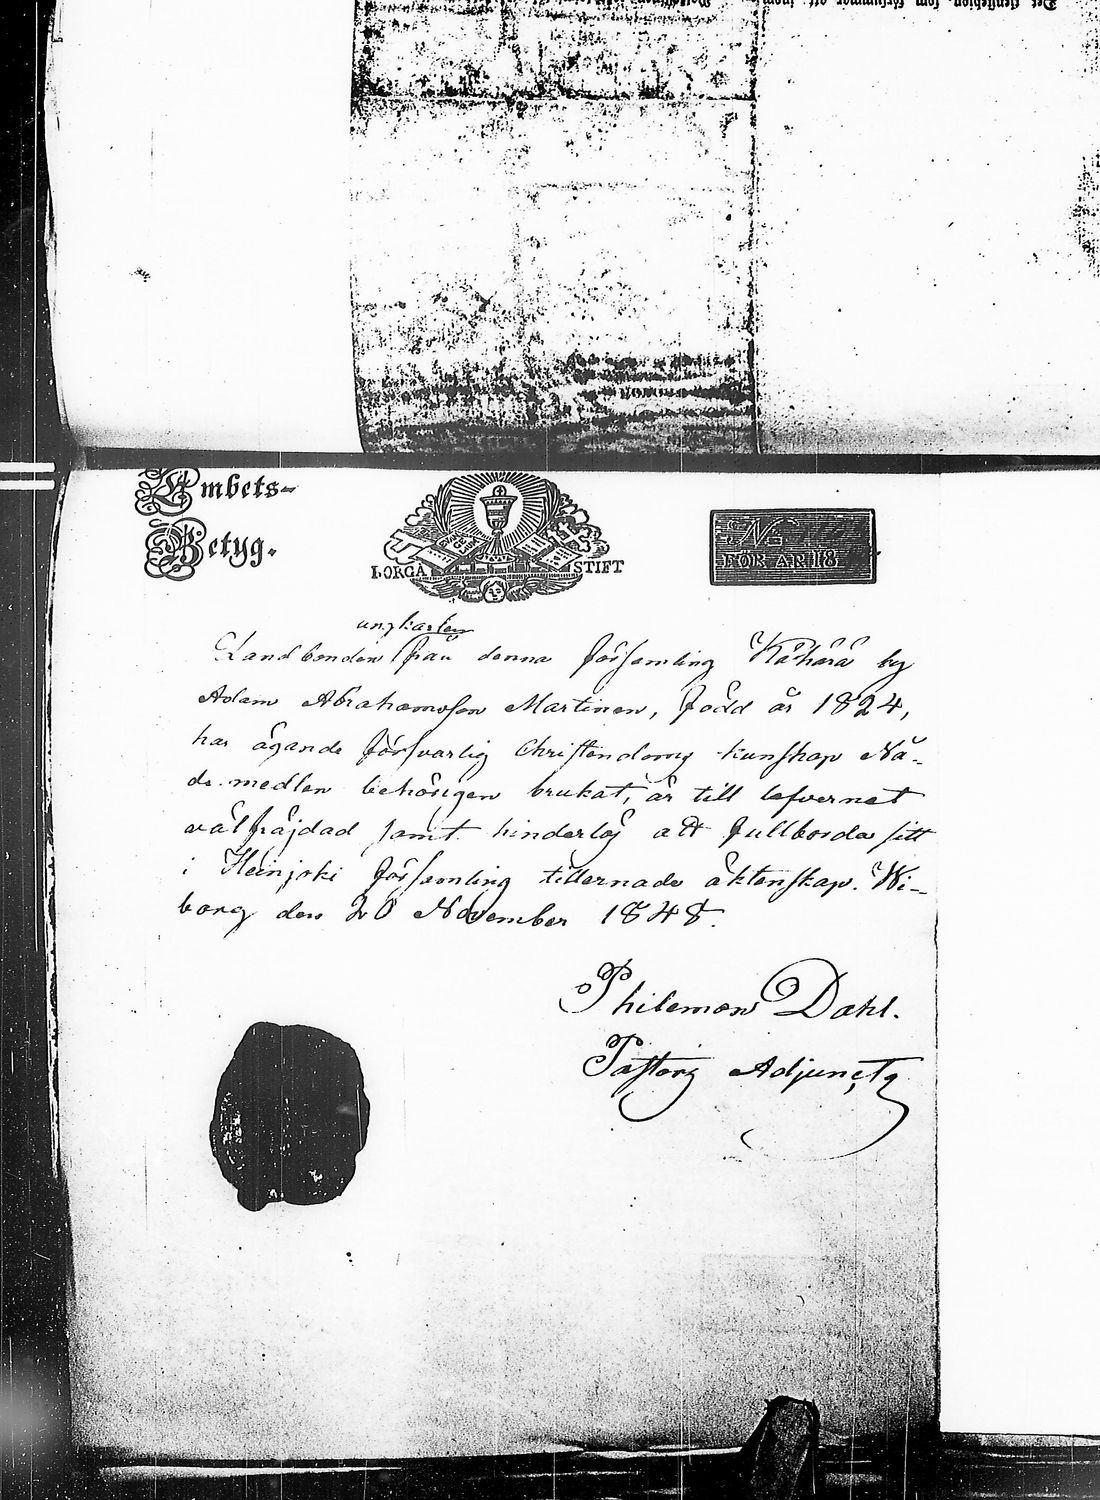 Embets-
Betyg.
BORGÅ STIFT
No
FÖR ÅR 18
ungkarlen
Landbonden från denna församling Kähärä by
Adam Abrahamsson Martinen, född år 1824,
har ägande försvarlig Christendoms kunskap Nå-
de medlen behörigen brukat, är till lefvernet
välfräjdad samt hinderlös att fullborda sitt
i Heinjoki församling tillernade äktenskap. Wi-
borg den 20 November 1848.
Philemon Dahl.
Pastors Adjunct